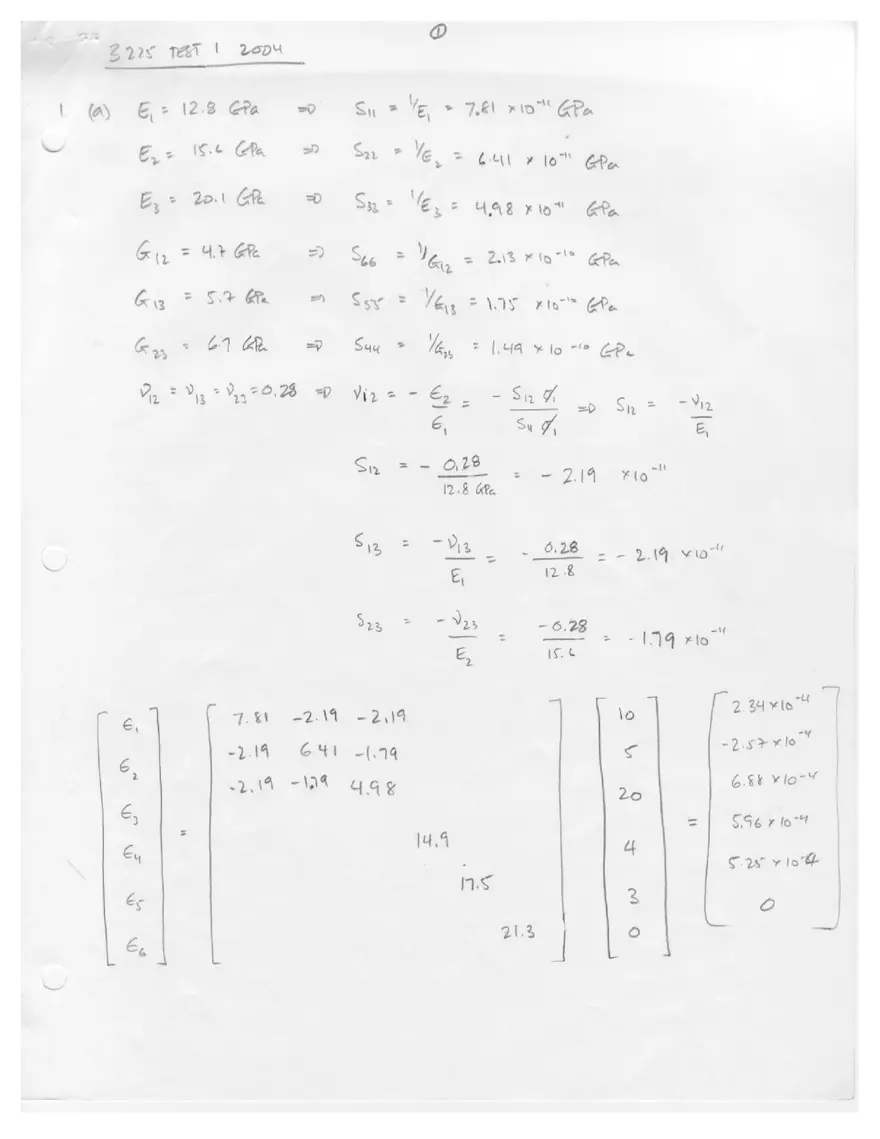 ①
3225 TEST 1 2004
1 (a) E₁ = 12.8 GPa ⇒ S₁₁ = 1/E₁ = 7.81 × 10⁻¹¹ GPa
E₂ = 15.6 GPa ⇒ S₂₂ = 1/E₂ = 6.41 × 10⁻¹¹ GPa
E₃ = 20.1 GPa ⇒ S₃₃ = 1/E₃ = 4.98 × 10⁻¹¹ GPa
G₁₂ = 4.7 GPa ⇒ S₆₆ = 1/G₁₂ = 2.13 × 10⁻¹⁰ GPa
G₁₃ = 5.7 GPa ⇒ S₅₅ = 1/G₁₃ = 1.75 × 10⁻¹⁰ GPa
G₂₃ = 6.7 GPa ⇒ S₄₄ = 1/G₂₃ = 1.49 × 10⁻¹⁰ GPa
ν₁₂ = ν₁₃ = ν₂₃ = 0.28 ⇒ ν₁₂ = - ϵ₂/ϵ₁ = - S₁₂ σ₁/S₁₁ σ₁ ⇒ S₁₂ = -ν₁₂/E₁
S₁₂ = - 0.28/12.8 GPa = - 2.19 × 10⁻¹¹
S₁₃ = -ν₁₃/E₁ = - 0.28/12.8 = - 2.19 × 10⁻¹¹
S₂₃ = -ν₂₃/E₂ = -0.28/15.6 = - 1.79 × 10⁻¹¹
ϵ₁ 7.81 -2.19 -2.19 10 2.34 × 10⁻⁴
ϵ₂ -2.19 641 -1.79 5 -2.57 × 10⁻⁴
-2.19 -1.79 4.98 20 6.88 × 10⁻⁴
ϵ₃ = = 5.96 × 10⁻⁴
ϵ₄ 14.9 4 5.25 × 10⁻⁴
ϵ₅ 17.5 3 0
ϵ₆ 21.3 0